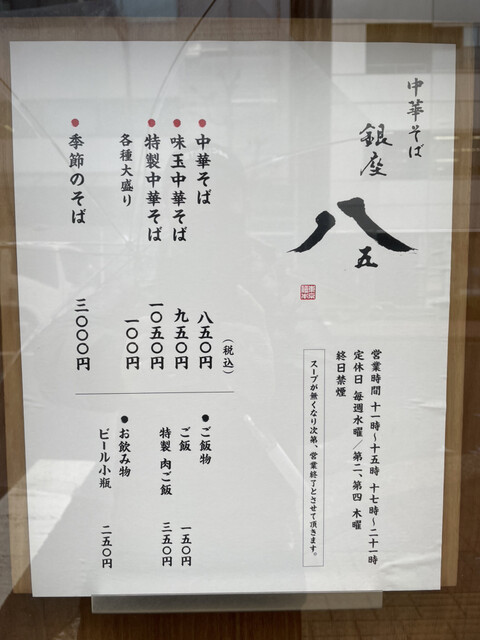 中華そば
銀座
八五
営業時間 十一時〜十五時 十七時〜二十一時
定休日 毎週水曜／第二、第四 木曜
終日禁煙
スープが無くなり次第、営業終了とさせて頂きます。
●中華そば 八五〇円（税込）
●味玉中華そば 九五〇円
●特製中華そば 一〇五〇円
各種大盛り 一〇〇円
●季節のそば 三〇〇〇円
●ご飯物
ご飯 一五〇円
特製 肉ご飯 三五〇円
●お飲み物
ビール小瓶 二五〇円